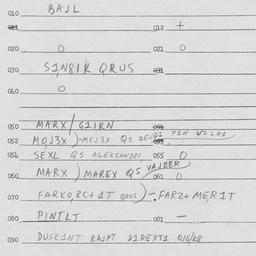 010 BAJL
011 012 +
020 0 021 0
030 S1N81K QRUS 031
040 0
050 MARX/G1IRN 051
052 MOJ3X)-MEJ3X QS 053
054 SEXL QS ALEKSANDRI 055 0
060 MARX)MAREX QS VALBER 061 0
070 FARKO,RC+1T QRUS)-,FARZ+MER1T
080 PINTLT 081 -
090 DUSK1NT RAJPT D1REXT1